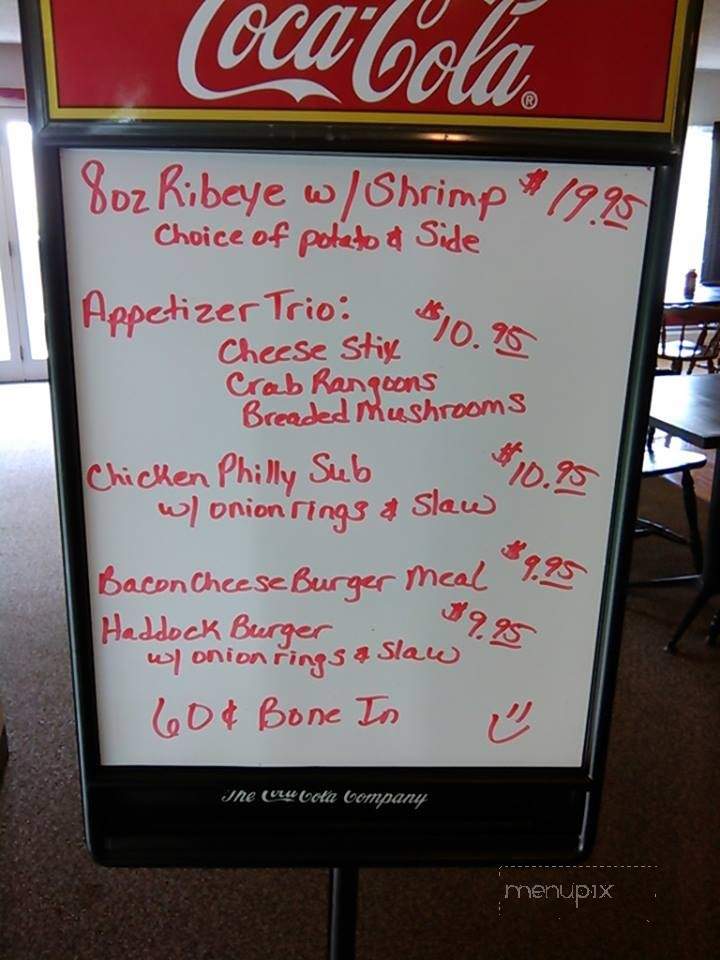 Coca-Cola®
8oz Ribeye w/ Shrimp $19.95
Choice of potato & Side
Appetizer Trio: $10.95
Cheese Stix
Crab Rangoons
Breaded Mushrooms
Chicken Philly Sub $10.95
w/ onion rings & Slaw
Bacon Cheese Burger Meal $9.95
Haddock Burger $9.95
w/ onion rings & Slaw
60¢ Bone In
The Coca-Cola Company
menupix